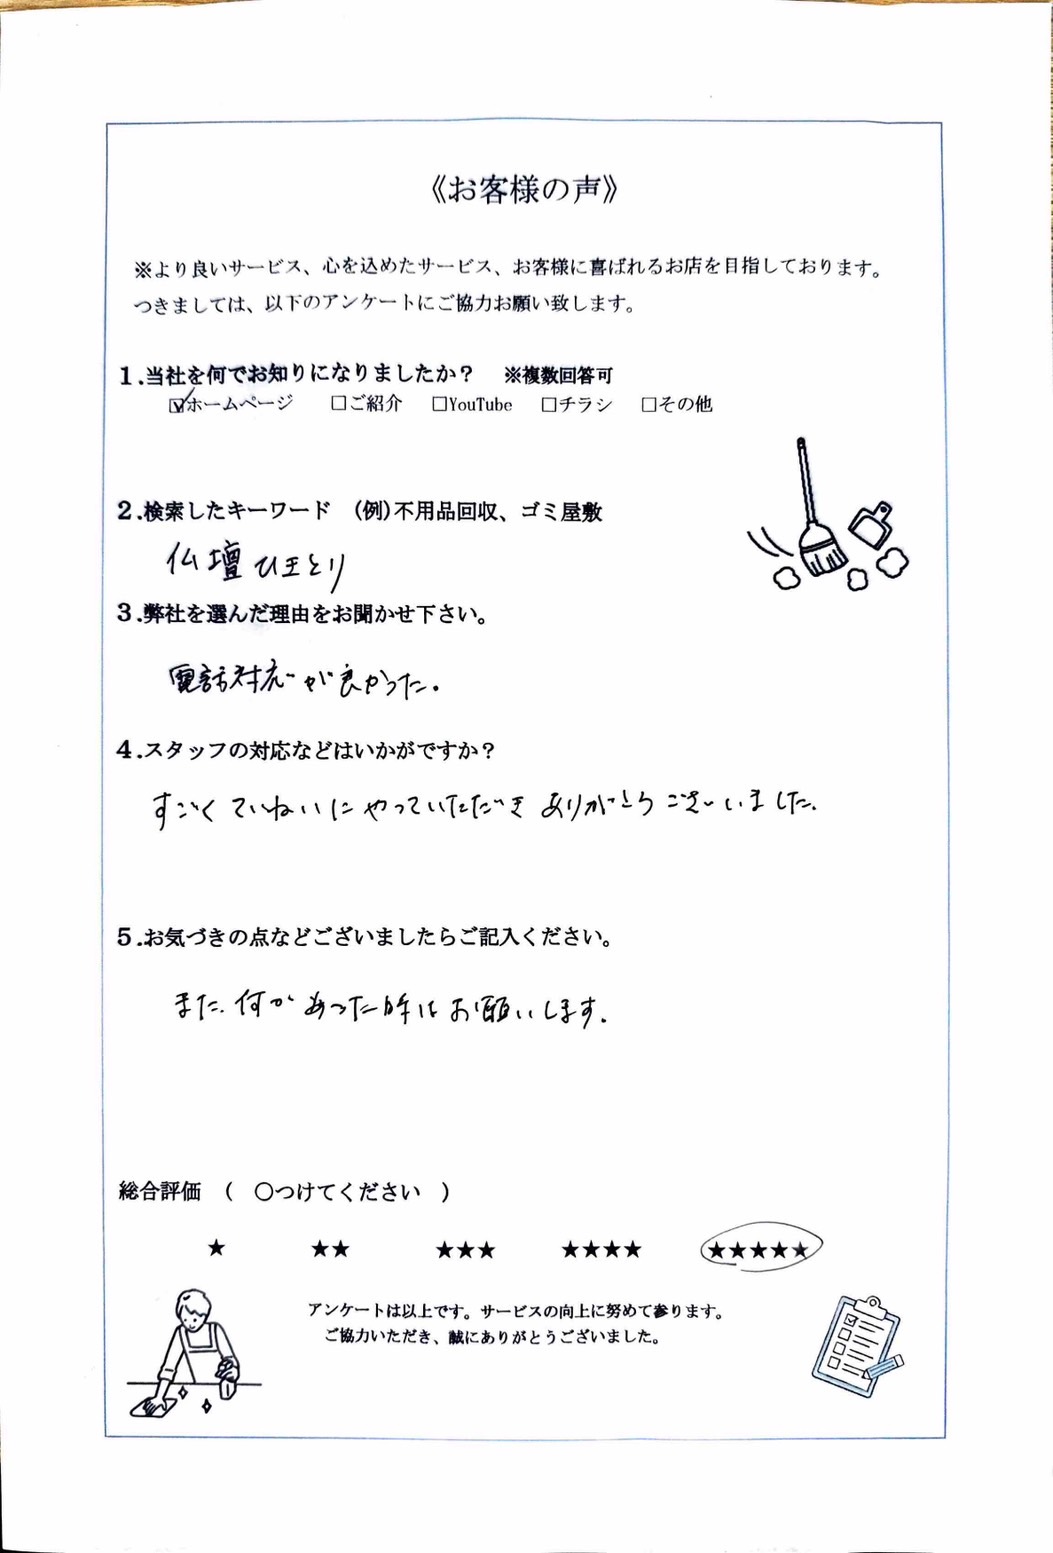 《お客様の声》
※より良いサービス、心を込めたサービス、お客様に喜ばれるお店を目指しております。
つきましては、以下のアンケートにご協力お願い致します。
1.当社を何でお知りになりましたか？　※複数回答可
☑ホームページ　□ご紹介　□YouTube　□チラシ　□その他
2.検索したキーワード　(例)不用品回収、ゴミ屋敷
仏壇ひきとり
3.弊社を選んだ理由をお聞かせ下さい。
電話対応が良かった。
4.スタッフの対応などはいかがですか？
すごくていねいにやっていただき ありがとうございました。
5.お気づきの点などございましたらご記入ください。
また何かあった時はお願いします。
総合評価　(　○つけてください　)
★　★★　★★★　★★★★　★★★★★
アンケートは以上です。サービスの向上に努めて参ります。
ご協力いただき、誠にありがとうございました。